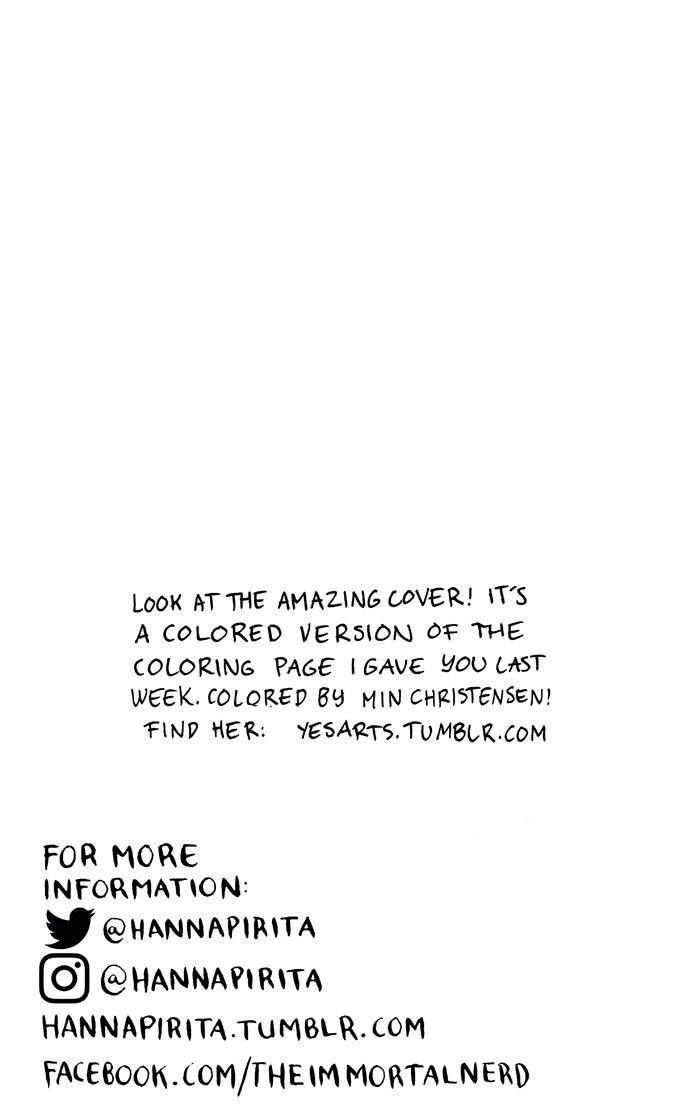 LOOK AT THE AMAZING COVER! IT'S
A COLORED VERSION OF THE
COLORING PAGE I GAVE YOU LAST
WEEK. COLORED BY MIN CHRISTENSEN!
FIND HER: YESARTS.TUMBLR.COM
FOR MORE
INFORMATION:
@HANNAPIRITA
@HANNAPIRITA
HANNAPIRITA.TUMBLR.COM
FACEBOOK.COM/THEIMMORTALNERD